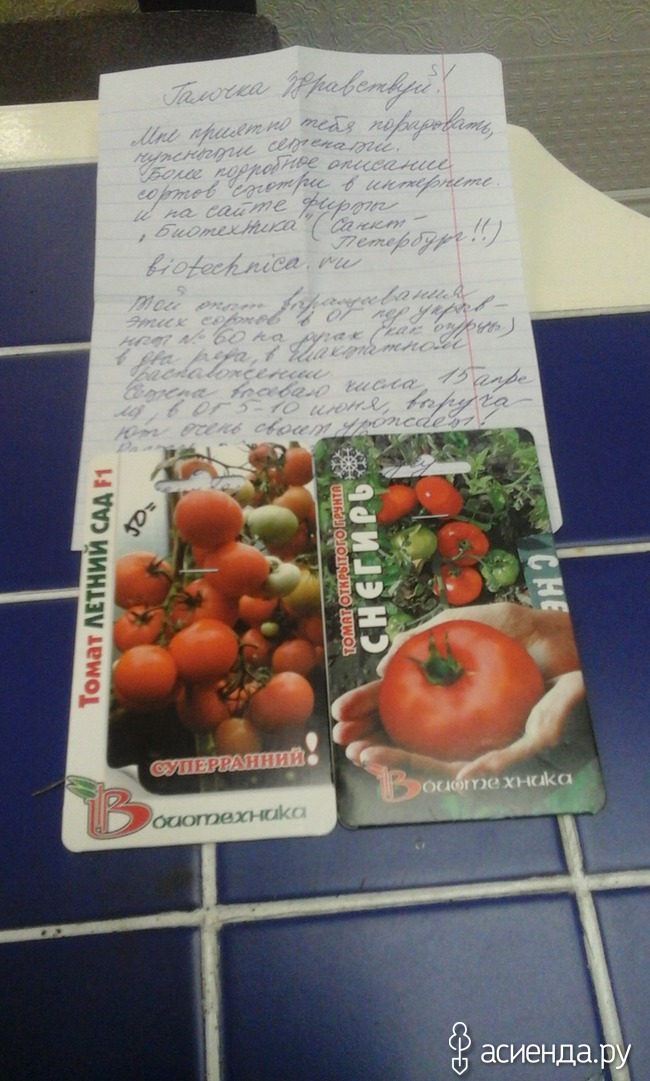 Галочка Здравствуй!
Мне приятно тебя порадовать,
нужными семенами.
Более подробное описание
сортов смотри в интернете.
и на сайте фирмы
„Биотехника" (Санкт-
Петербург!!)
biotechnica.ru
Мой опыт выращивания
этих сортов в ОГ под укрыв-
ным № 60 на дугах (как огурцы)
в два ряда, в шахматном
расположении.
Семена высеваю числа 15 апре
ля, в ОГ 5-10 июня, выруча-
ют очень своим урожаем!
Томат ЛЕТНИЙ САД F1
50=
СУПЕРРАННИЙ!
Биотехника
ТОМАТ ОТКРЫТОГО ГРУНТА
СНЕГИРЬ
СНЕ
Биотехника
асиенда.ру